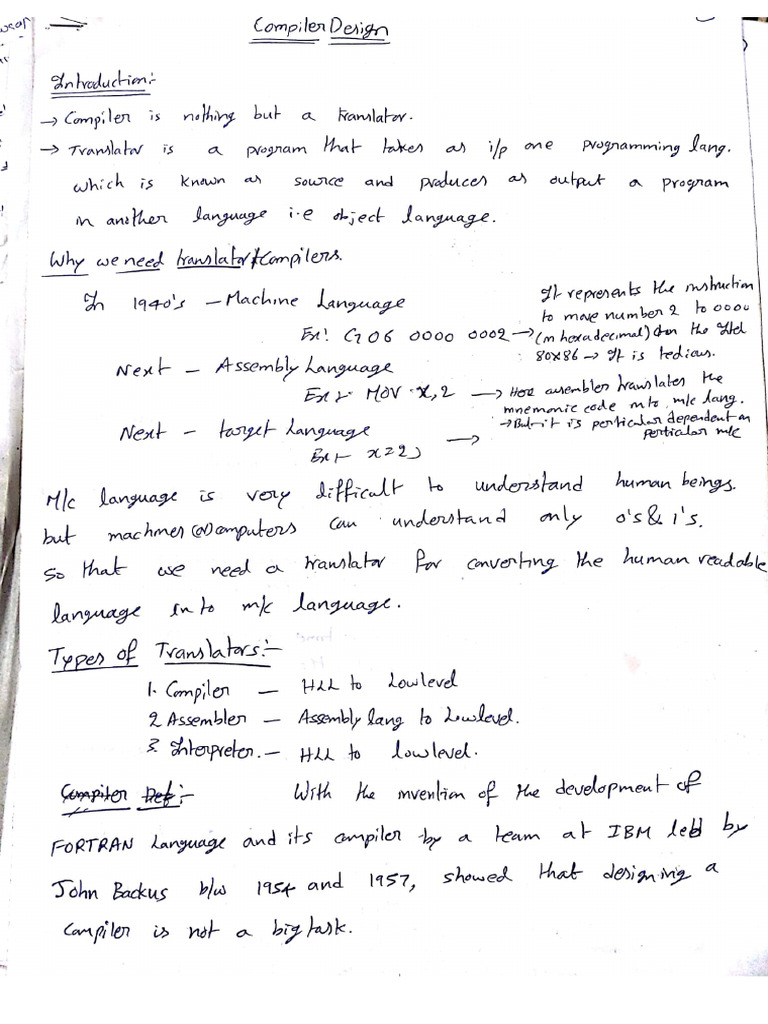 Compiler Design
Introduction:-
→ Compiler is nothing but a translator.
→ Translator is a program that takes as i/p one programming lang.
which is known as source and produces as output a program
in another language i.e object language.
Why we need translator/Compilers.
In 1940's – Machine Language
Ex: C7 06 0000 0002 →
It represents the instruction
to move number 2 to 0000
(in hexadecimal) on the Intel
80x86 → It is tedious.
Next – Assembly Language
Ex:- MOV x,2 →
Here assembler translates the
mnemonic code into m/c lang.
→ But it is perticular dependent on
perticular m/c
Next – target Language
Ex:- x=2; →
M/c language is very difficult to understand human beings.
but machines (or) computers can understand only 0's & 1's.
so that we need a translator for converting the human readable
language in to m/c language.
Types of Translators:-
1. Compiler – HLL to Low level
2. Assembler – Assembly lang to Low level.
3. Interpreter. – HLL to low level.
Compiler Def:- With the invention of the development of
FORTRAN Language and its compiler by a team at IBM led by
John Backus b/w 1954 and 1957, showed that designing a
compiler is not a big task.